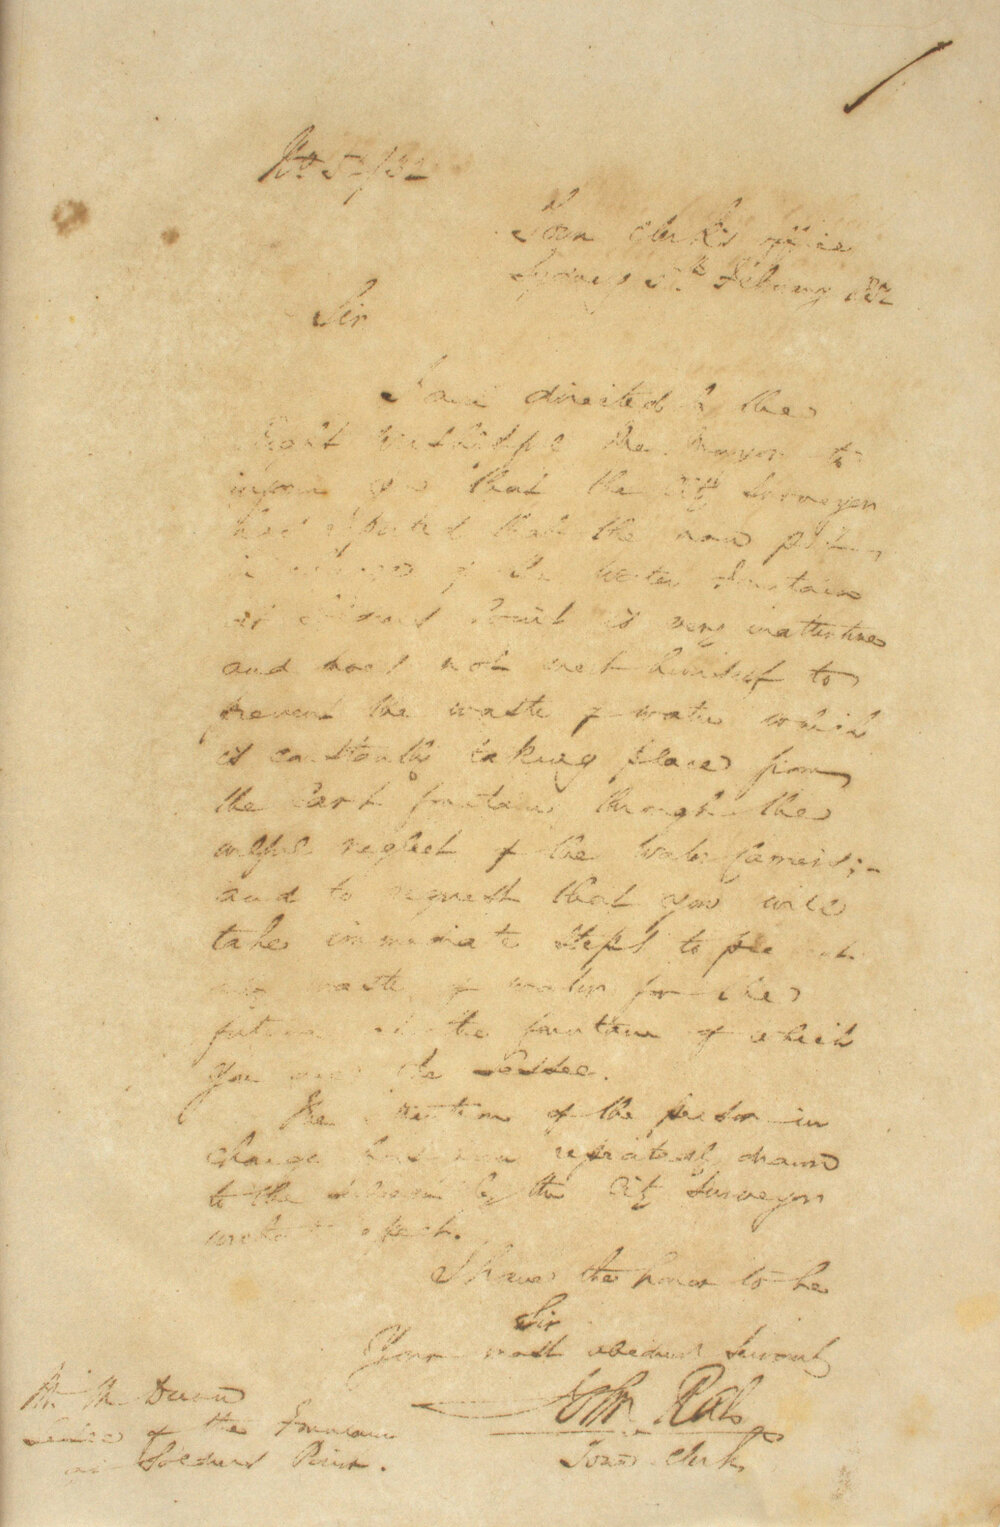 No 52/52
Town Clerk's Office
Sydney 5th February 1852
Sir
I am directed by the
Right Worshipful the Mayor to
inform you that the City Surveyor
has reported that the man
in charge of the Water Fountain
at Soldiers Point is very inattentive
and does not exert himself to
prevent the waste of water which
is constantly taking place from
the Cart fountain through the
wilful neglect of the Water Carriers;-
and to request that you will
take immediate steps to prevent
any waste of water for the
future at the fountain of which
you are the Lessee.
The attention of the person in
charge has been repeatedly drawn
to the by the City Surveyor
without effect.
I have the honor to be
Sir
Your most obedient Servant
John Rae
Town Clerk
Mr M
Lessee of the Fountain
at Soldiers Point.